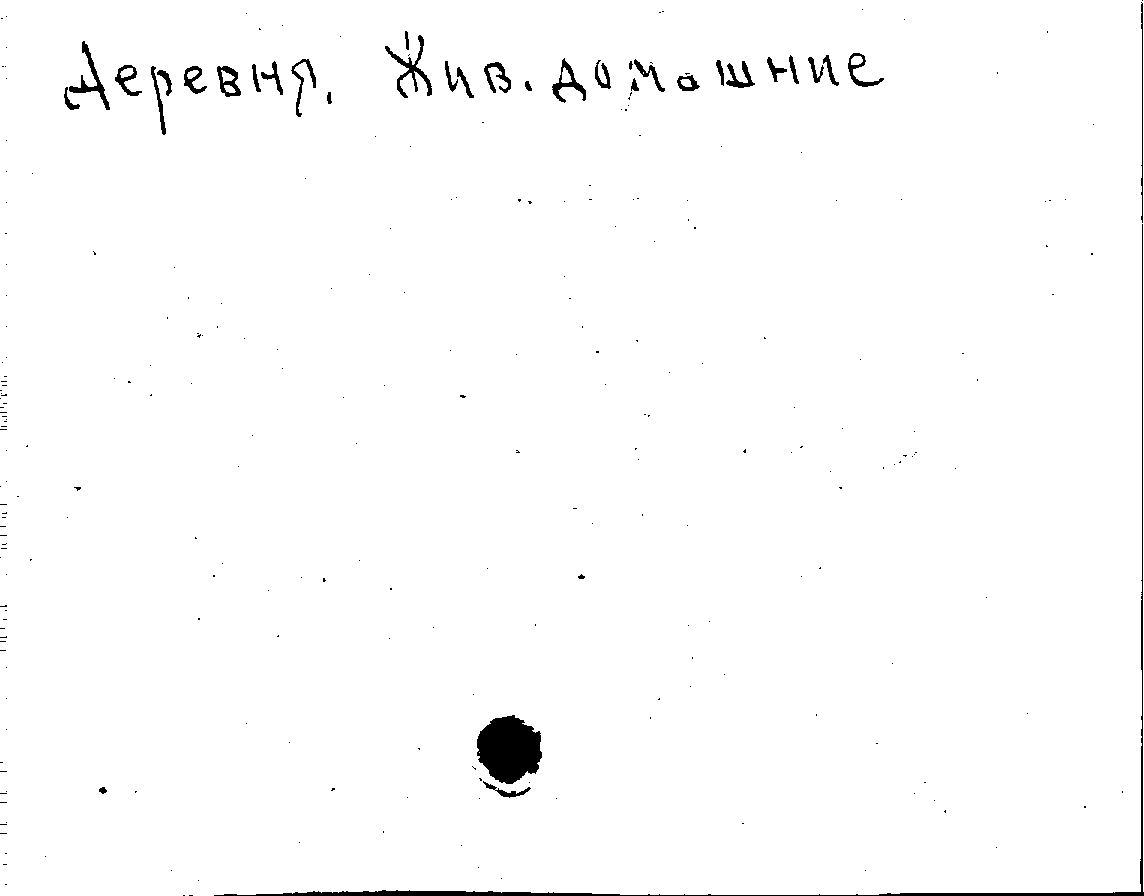 Деревня. Жив. домашние